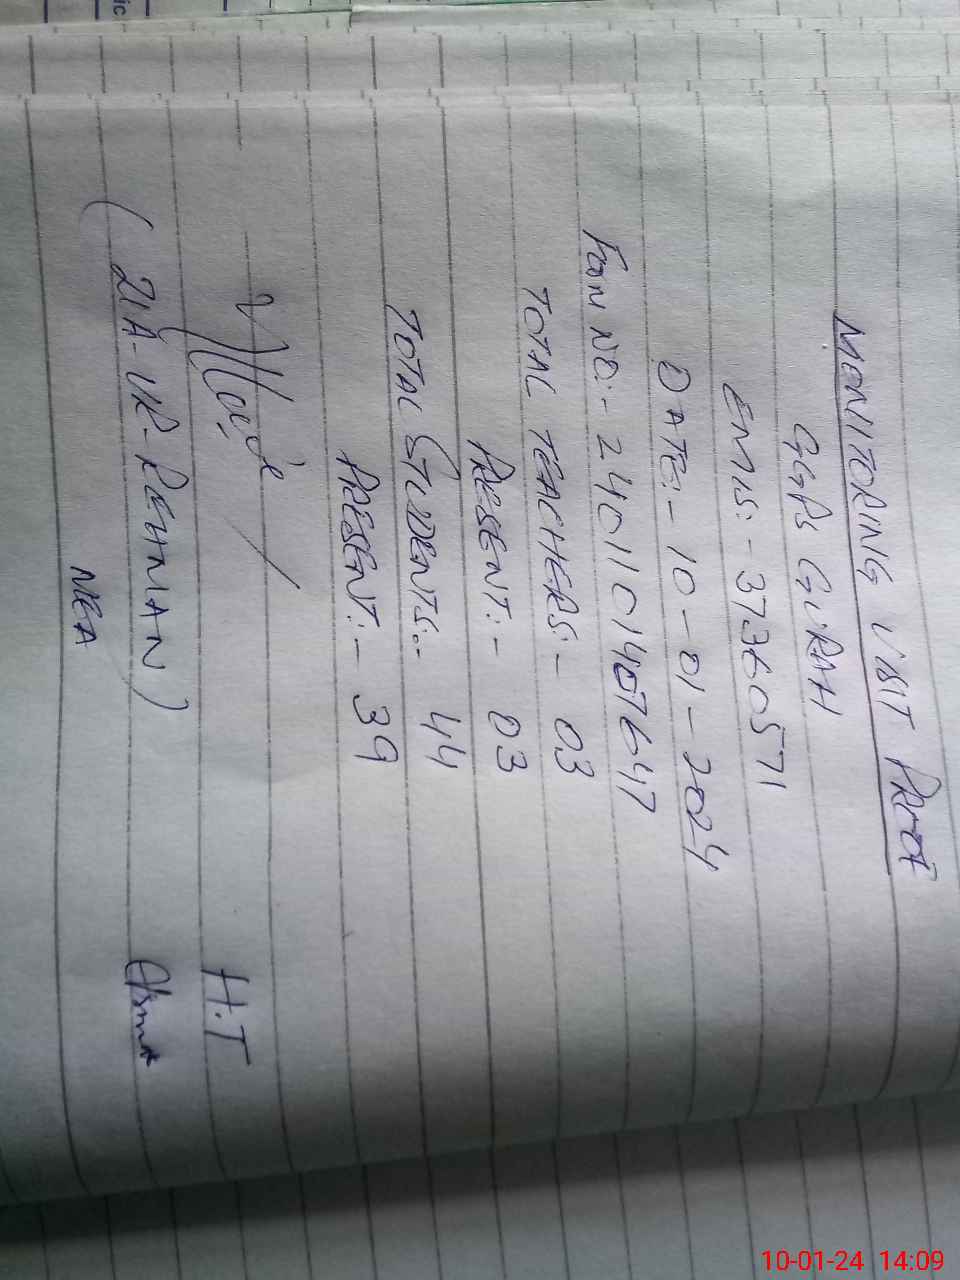 MONITORING VISIT PROOF
GGPS GIRAH
EMIS:- 37360571
DATE:- 10-01-2024
FORM NO:- 2401101407647
TOTAL TEACHERS:- 03
PRESENT:- 03
TOTAL STUDENTS:- 44
PRESENT:- 39
H.T
(ZIA-UR-REHMAN) Asma
MEA
10-01-24 14:09